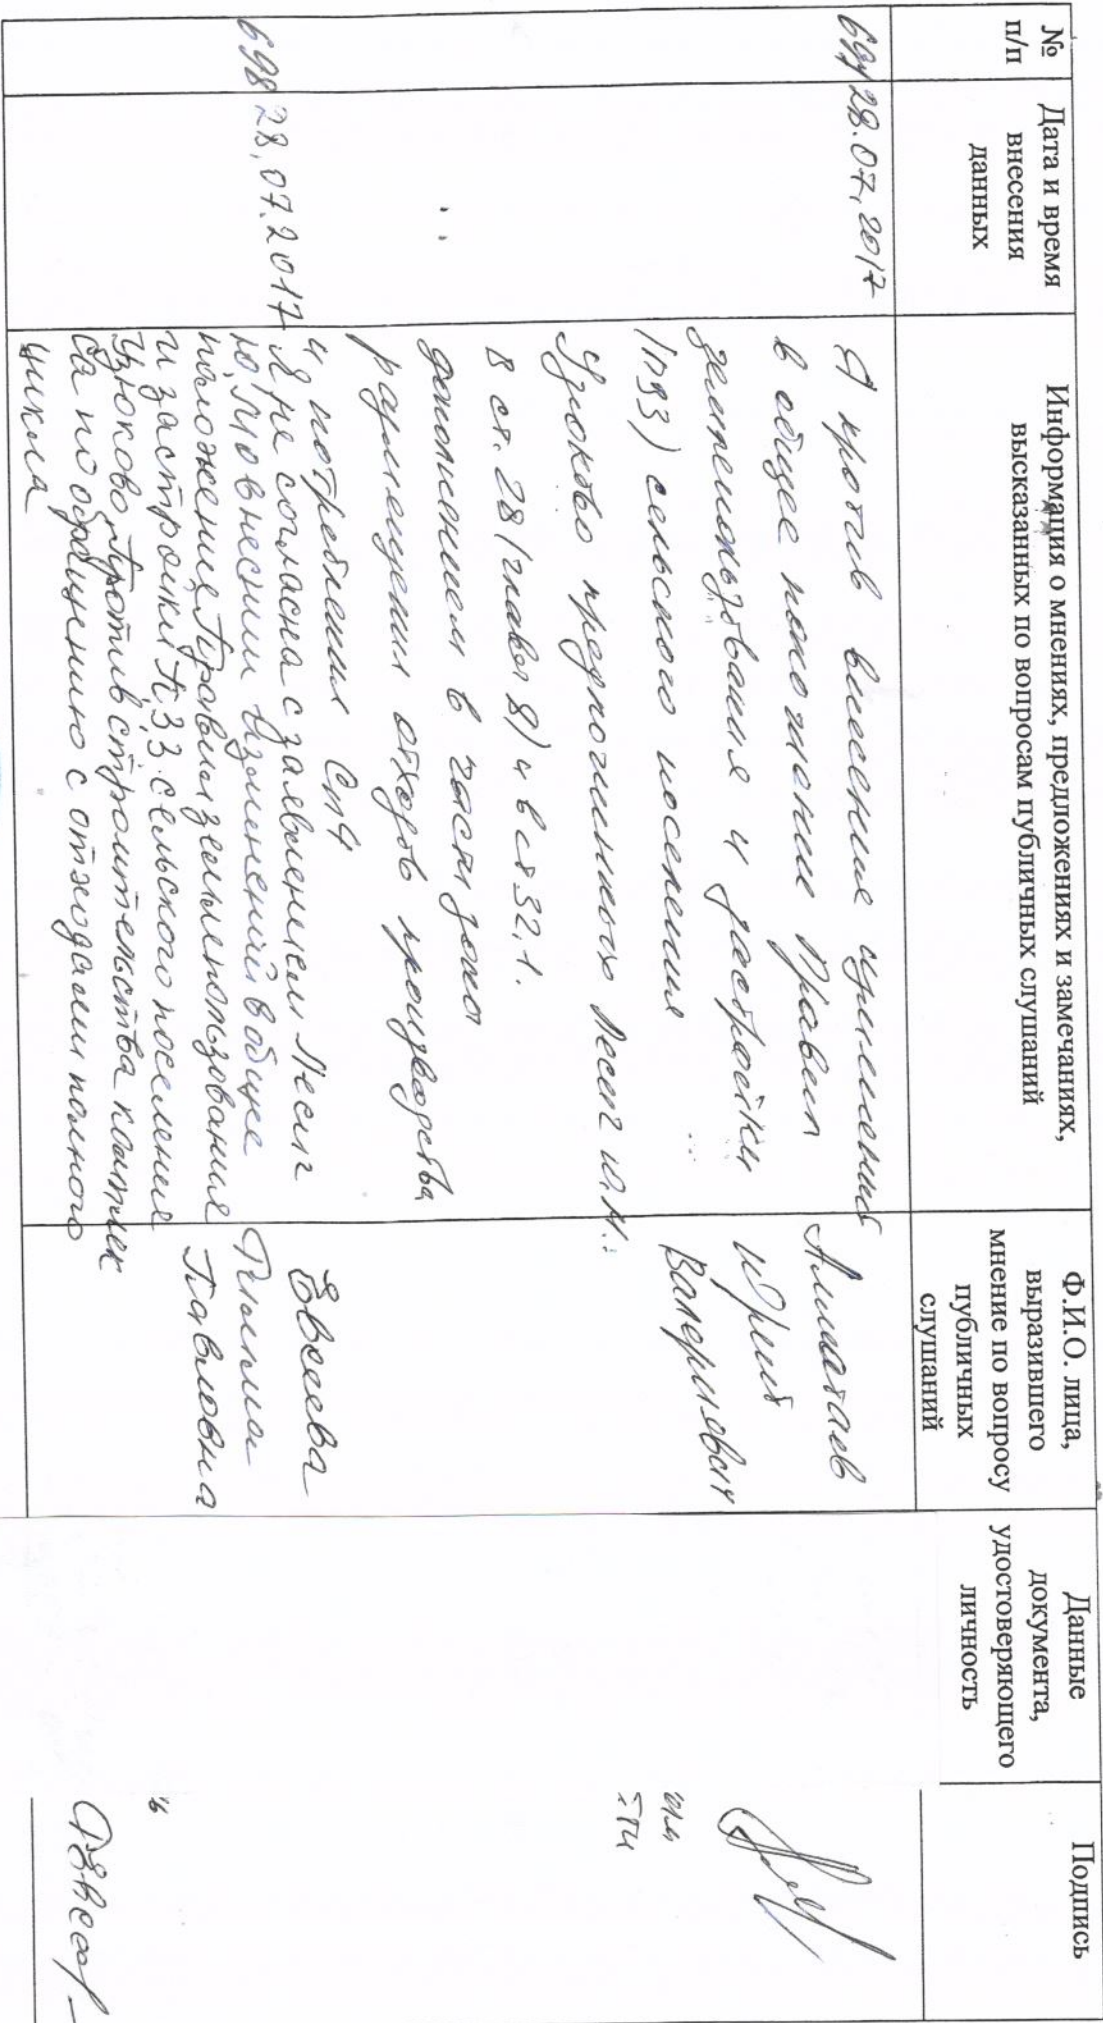 №
п/п
Дата и время
внесения
данных
Информация о мнениях, предложениях и замечаниях,
высказанных по вопросам публичных слушаний
Ф.И.О. лица,
выразившего
мнение по вопросу
публичных
слушаний
Данные
документа,
удостоверяющего
личность
Подпись
697
28.07.2017
Я против внесение изменений
в общее положение Правил
землепользования и застройки
(ПЗЗ) сельского поселения
Узюково предложенных Лесит Ю.М.:
В ст. 28 (глава 8) и в ст 32.1.
дополнением в части зона
размещения отходов производства
и потребления Сп4
Юрий
Валериевич
698
28.07.2017
Я не согласна с заявлением Лесит
Ю.М о внесении изменений в общее
положение Правил землепользования
и застройки П.З.З. сельского поселения
Узюково Против строительства комплек
са по обращению с отходами полного
цикла
Евсеева
Павловна